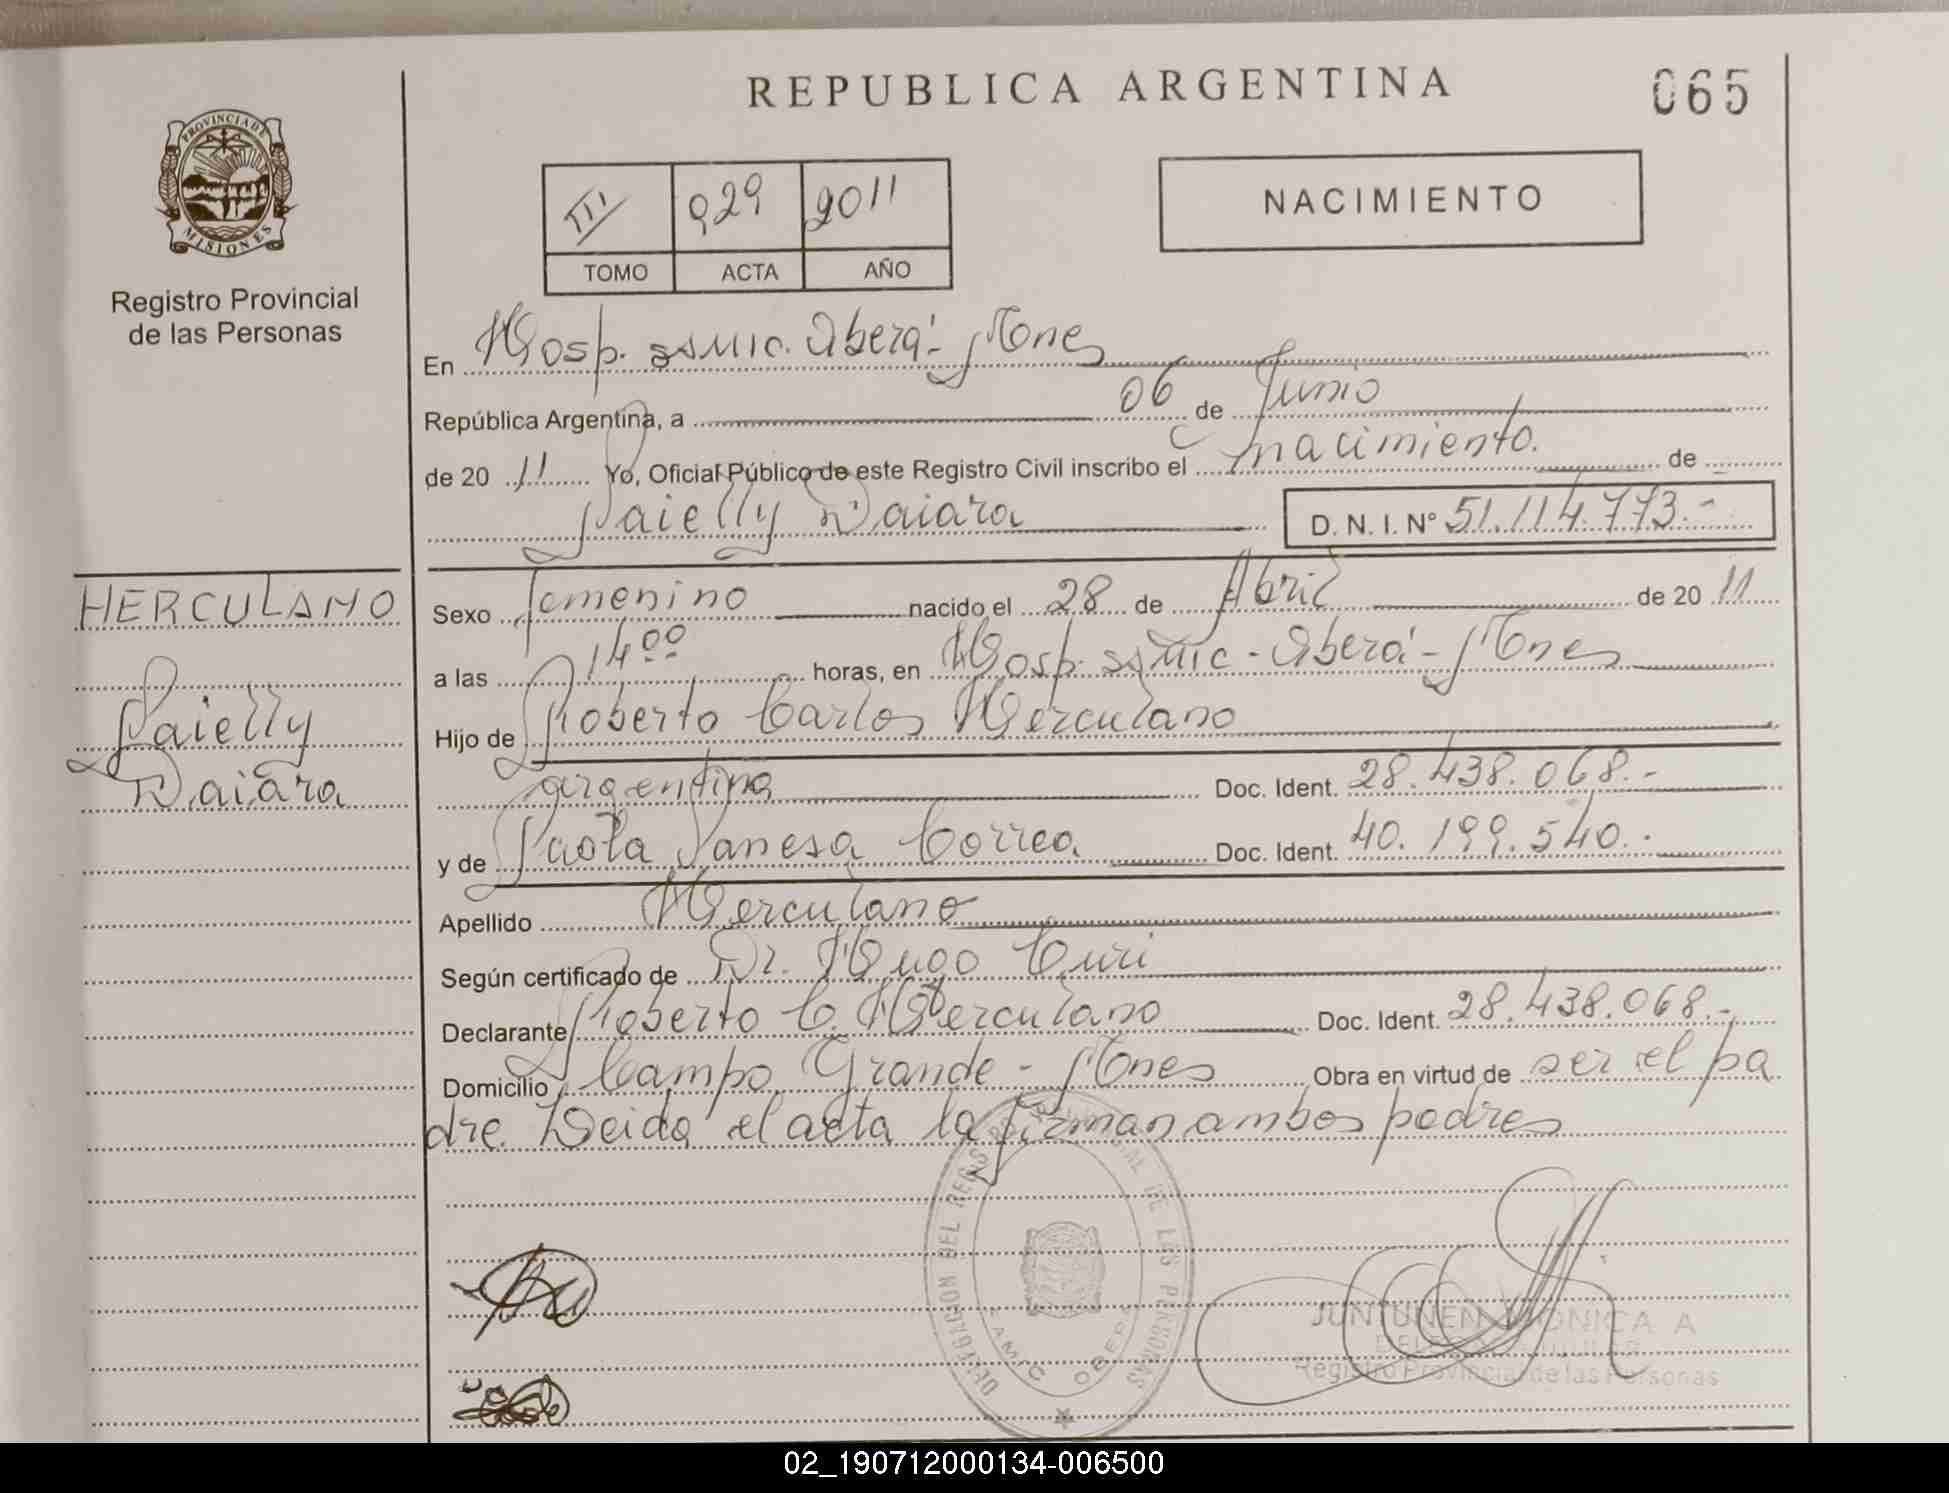 REPUBLICA ARGENTINA
065
PROVINCIA DE MISIONES
Registro Provincial
de las Personas
III 929 2011
TOMO ACTA AÑO
NACIMIENTO
En Hosp. ssmic. Oberá - Mnes
República Argentina, a 06 de Junio
de 20 11 Yo, Oficial Público de este Registro Civil inscribo el nacimiento. de
Daiara
D. N. I. Nº 51.114.773.-
HERCULANO
Daiara
Sexo femenino nacido el 28 de Abril de 20 11
a las 14⁰⁰ horas, en Hosp. ssmic - Oberá - Mnes
Hijo de Roberto Carlos Herculano
argentina Doc. Ident. 28.438.068.-
y de Paola Vanesa Correa Doc. Ident. 40.199.540.-
Apellido Herculano
Según certificado de Dr. Hugo Curi
Declarante Roberto C. Herculano Doc. Ident. 28.438.068.-
Domicilio Campo Grande - Mnes Obra en virtud de ser el pa
dre. Leida el acta la firman ambos padres
DELEGACION DEL REGISTRO PROVINCIAL DE LAS PERSONAS
SAMIC OBERA
JUNTUNEN MONICA A
Registro Provincial de las Personas
02_190712000134-006500